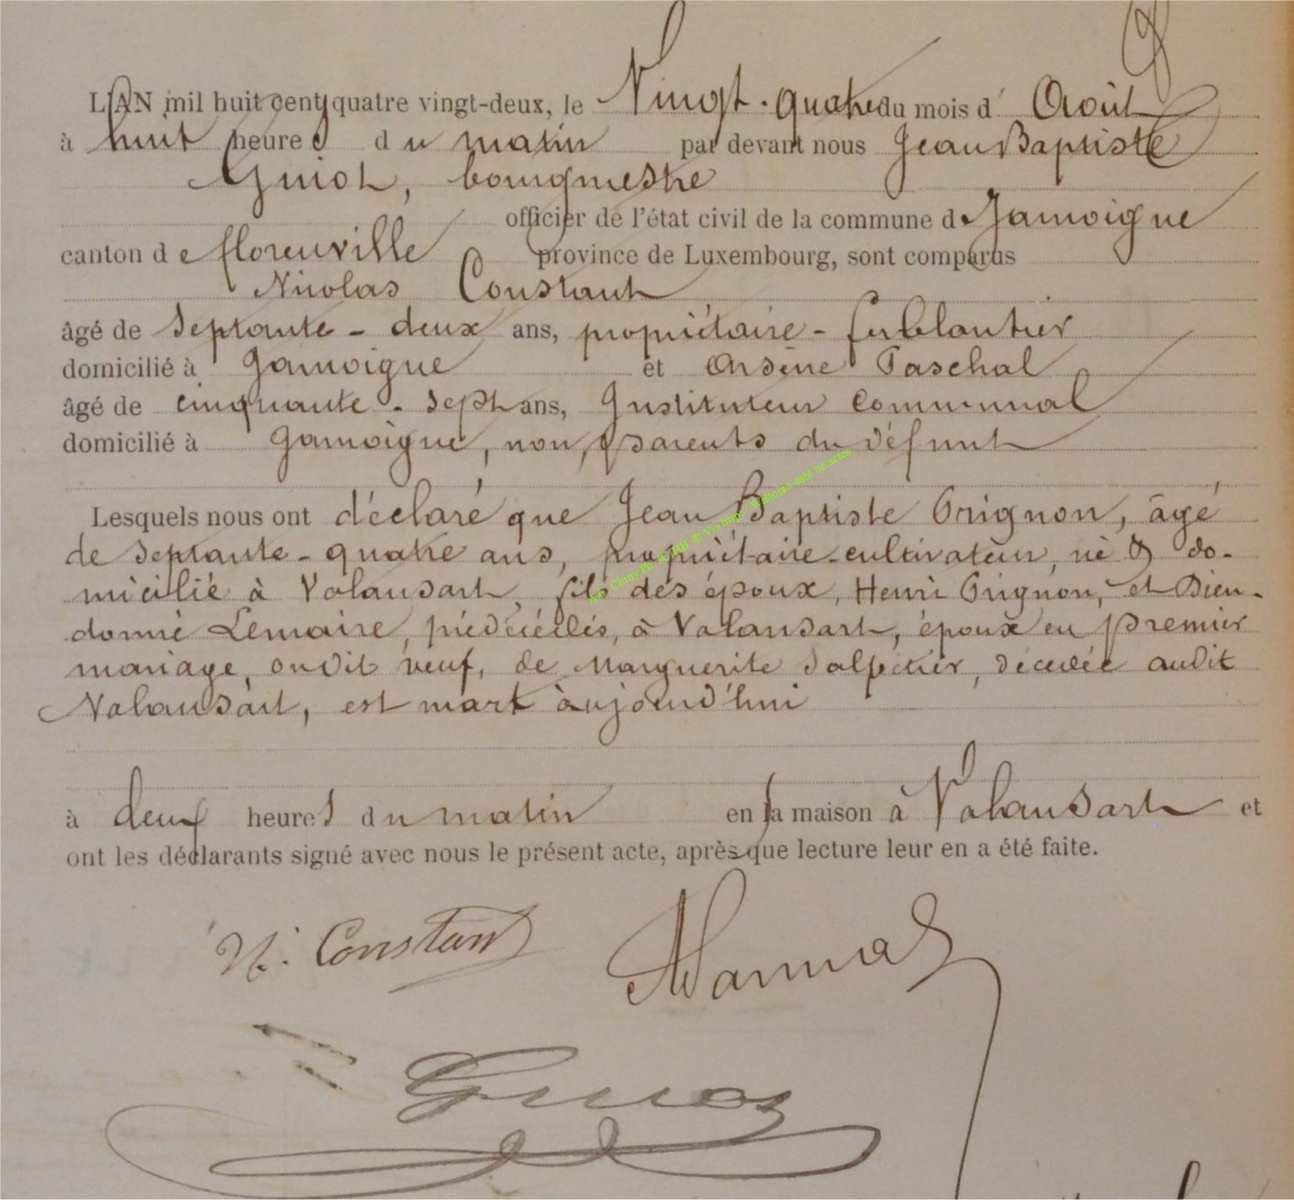 L'AN mil huit cent quatre vingt-deux, le Vingt-quatre du mois d' Août
à huit heures du matin par devant nous Jean Baptiste
Guiot, bourgmestre
officier de l'état civil de la commune de Jamoigne
canton de florenville province de Luxembourg, sont comparus
Nicolas Constant
âgé de Septante-deux ans, propriétaire-ferblantier
domicilié à Jamoigne et Arsène Paschal
âgé de cinquante-sept ans, Instituteur Communal
domicilié à Jamoigne, non parents du défunt
Lesquels nous ont déclaré que Jean Baptiste Grignon, âgé
de septante-quatre ans, propriétaire-cultivateur, né & do-
micilié à Valansart, fils des époux, Henri Grignon, et Dieu-
donné Lemaire, prédécédés, à Valansart, époux en premier
mariage, on dit veuf, de Marguerite Salpétier, décédée audit
Valansart, est mort aujourd'hui
à deux heures du matin en sa maison à Valansart et
ont les déclarants signé avec nous le présent acte, après que lecture leur en a été faite.
N. Constant
Guiot